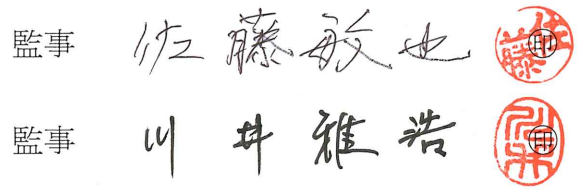 監事 佐藤敏也 ㊞
監事 川井雅浩 ㊞